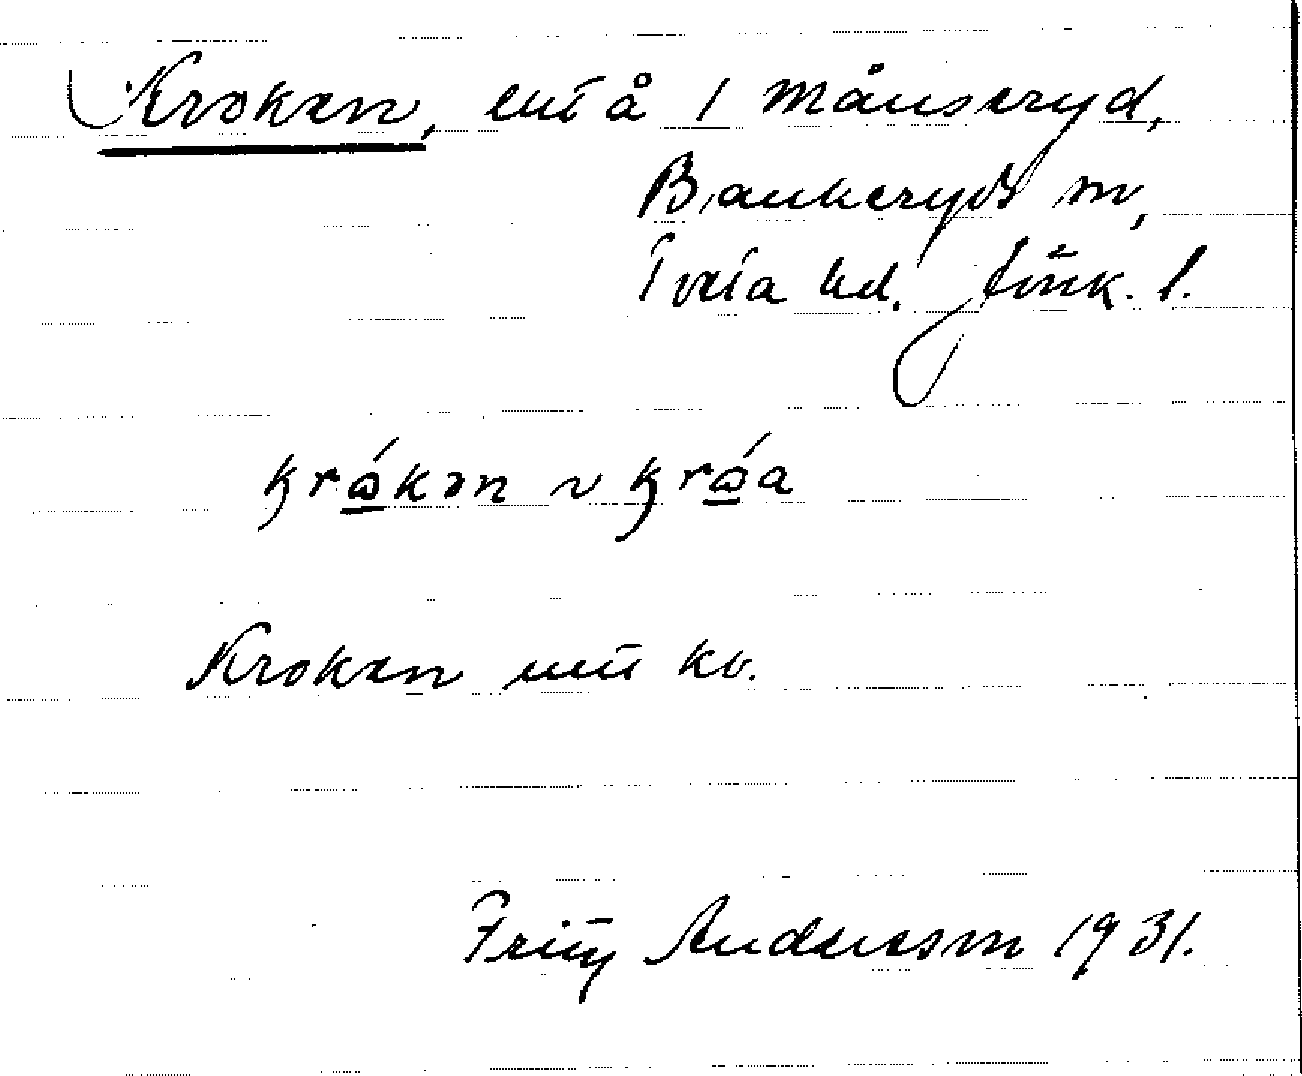 Kroken, lht å 1 Månseryd,
Bankeryds sn,
Tveta hd. Jönk. l.
krókən ~ króa
Kroken enl kv.
Fritz Andersson 1931.